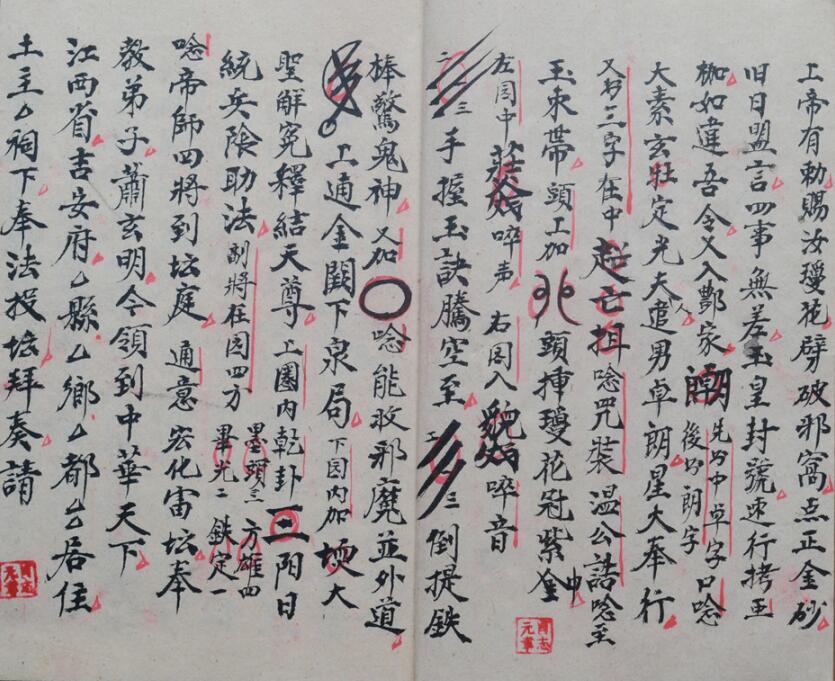 上帝有勅賜汝瓊花劈破邪窩点正金砂
旧日盟言四事無差玉皇封號速行拷玉
枷如違吾令又入酆家 先书中卓字口唸
後书朗字
大素玄牡定光夫人追男卓朗星大奉行
又书三字在中 唸咒裝温公誥唸至
玉束帶頭上加 頭揷瓊花冠紫金
左圈中 啐声 右圈入 啐音
二 三手握玉訣騰空至 三倒提鉄
棒驚鬼神又加〇唸能收邪魔並外道
上通金闕下泉局下圆内加 大
聖解冤釋結天尊上圈内乾卦三阳日
統兵陰助法副將在园四方 墨頭三 方雄四
畢光二 鉄定一
唸帝師四將到坛庭通意宏化宙坛奉
教弟子蕭玄明今領到中華天下
江西省吉安府厶縣厶鄉厶都厶居住
土主厶祠下奉法投坛拜奏請